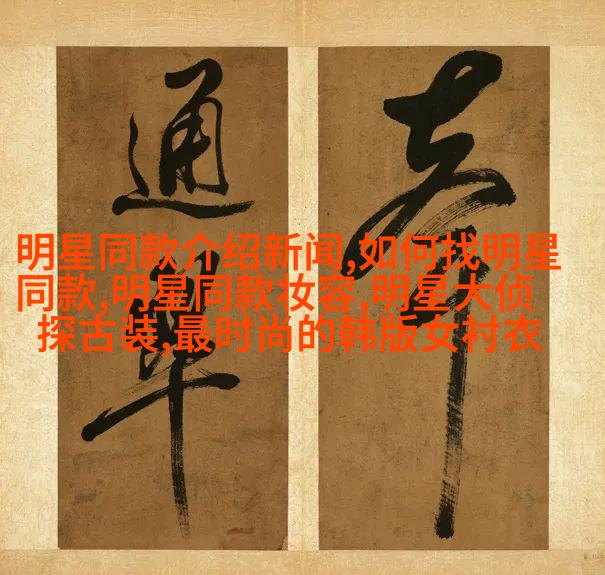 通
明星同款介绍新闻,如何找明星
同款,明星同款妆容,明星大侦
探古装,最时尚的韩版女衬衣